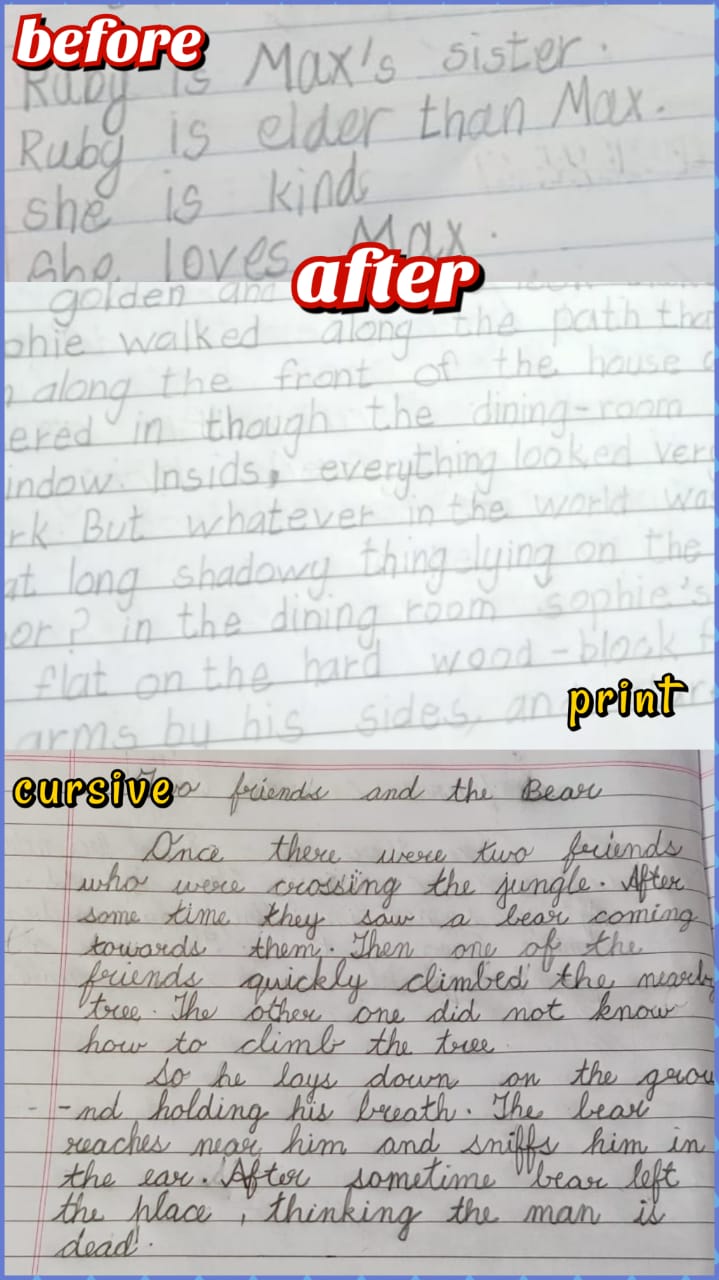 before
Ruby is Max's sister.
Ruby is elder than Max.
she is kind
she loves Max.
after
golden and
phie walked along the path tha
along the front of the house
ered in though the dining-room
indow. Insids, everything looked very
rk. But whatever in the world wa
at long shadowy thing lying on the
or? in the dining room sophie's
flat on the hard wood-block f
arms by his sides, an
print
cursive
Two friends and the Bear
Once there were two friends
who were crossing the jungle. After
some time they saw a bear coming
towards them. Then one of the
friends quickly climbed the nearby
tree. The other one did not know
how to climb the tree.
So he lays down on the grou
-nd holding his breath. The bear
reaches near him and sniffs him in
the ear. After sometime bear left
the place, thinking the man is
dead.